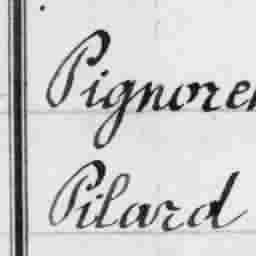 Pignorer
Pilard